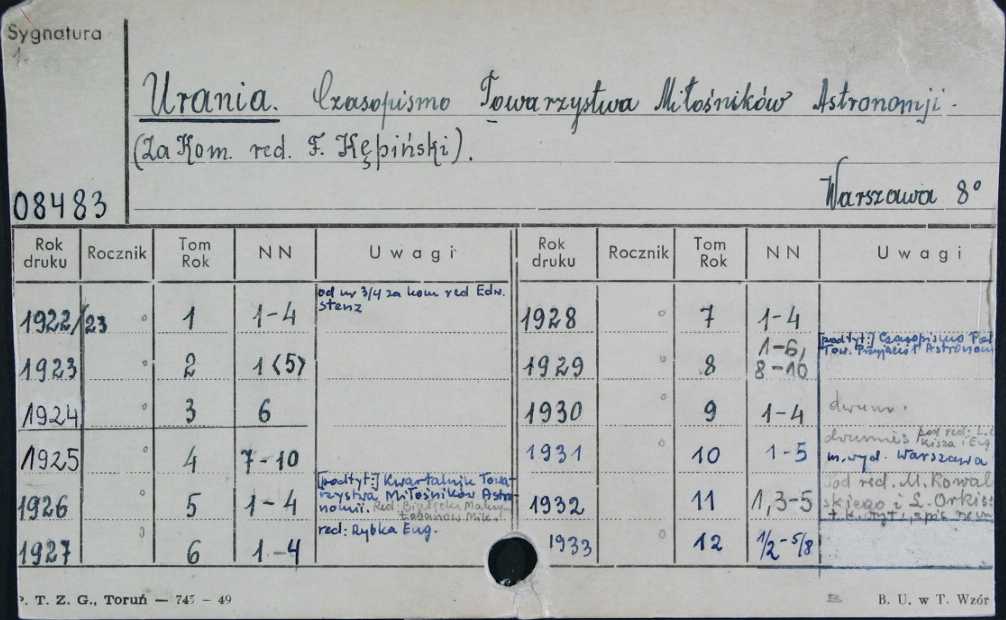 Sygnatura
Urania. Czasopismo Towarzystwa Miłośników Astronomji.
(Za Kom. red. F. Kępiński).
08483
Warszawa 8°
Rok druku Rocznik Tom Rok NN Uwagi Rok druku Rocznik Tom Rok NN Uwagi
od nr 3/4 za kom red Edw.
stenz
1922/23 1 1-4 1928 7 1-4
[podtyt:] Czasopismo Pol
Tow. Przyjaciół Astronom
1923 2 1(5) 1929 8 1-6, 8-10
1924 3 6 1930 9 1-4
1925 4 7-10 1931 10 1-5 pod red: L.
m. wyd. Warszawa
[podtyt:] Kwartalnik Towa-
rzystwa Miłośników Astro-
nomii.
1926 5 1-4 1932 11 1,3-5 pod red. M. Kowal
skiego i L. Orkisz
red: Rybka Eug.
1927 6 1-4 1933 12 1/2-5/8
P. T. Z. G., Toruń — 745 - 49 B. U. w T. Wzór